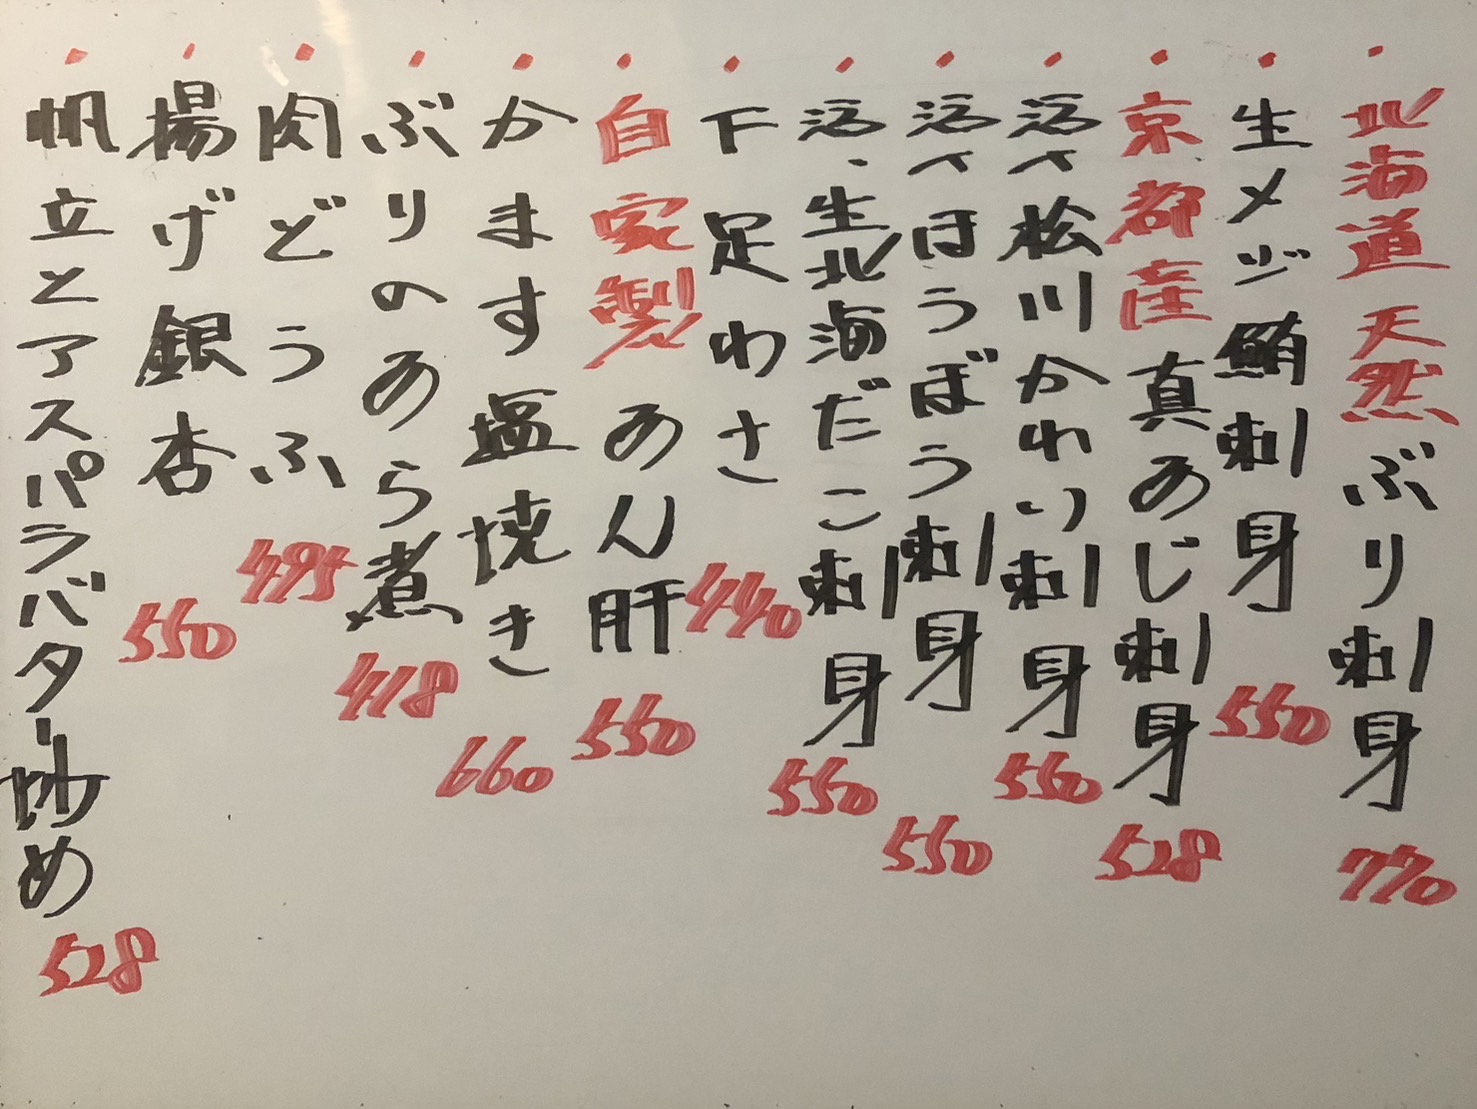 ・北海道 天然 ぶり刺身 770
・生メジ鮪刺身 550
・京都産 真あじ刺身 528
・活〆松川かれい刺身 550
・活〆ほうぼう刺身 550
・活、生北海だこ刺身 550
・下足わさ 440
・自家製 あん肝 550
・かます塩焼き 660
・ぶりのあら煮 418
・肉どうふ 495
・揚げ銀杏 550
・帆立とアスパラバター炒め 528